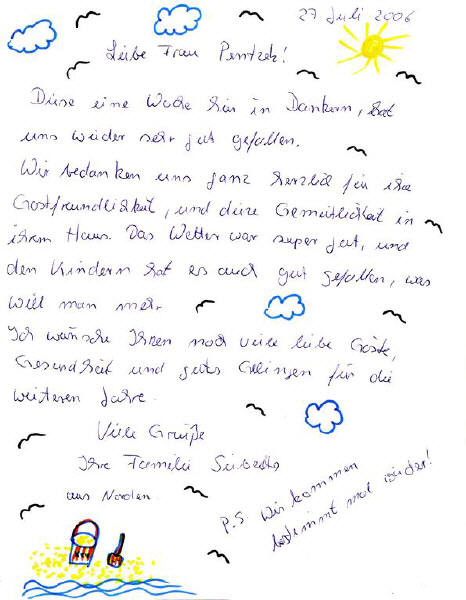 27 Juli 2006
Liebe Frau Pentzek!
Diese eine Woche hier in Dankern, hat
uns wieder sehr gut gefallen.
Wir bedanken uns ganz herzlich für ihre
Gastfreundlichkeit, und diese Gemütlichkeit in
ihrem Haus. Das Wetter war super gut, und
den Kindern hat es auch gut gefallen, was
will man mehr.
Ich wünsche Ihnen noch viele liebe Gäste,
Gesundheit und gutes Gelingen für die
weiteren Jahre.
Viele Grüße
Ihre Familie
aus Norden.
P.S Wir kommen
bestimmt mal wieder!